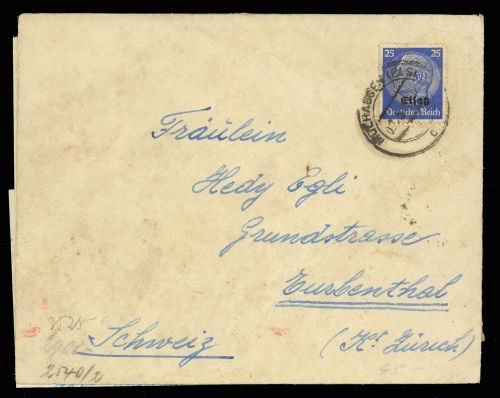 25 25
Elsaß
Deutsches Reich
MÜLHAUSEN
Fräulein
Hedy Egli
Grundstrasse
Turbenthal
Schweiz (Kt. Zürich)
2540/2